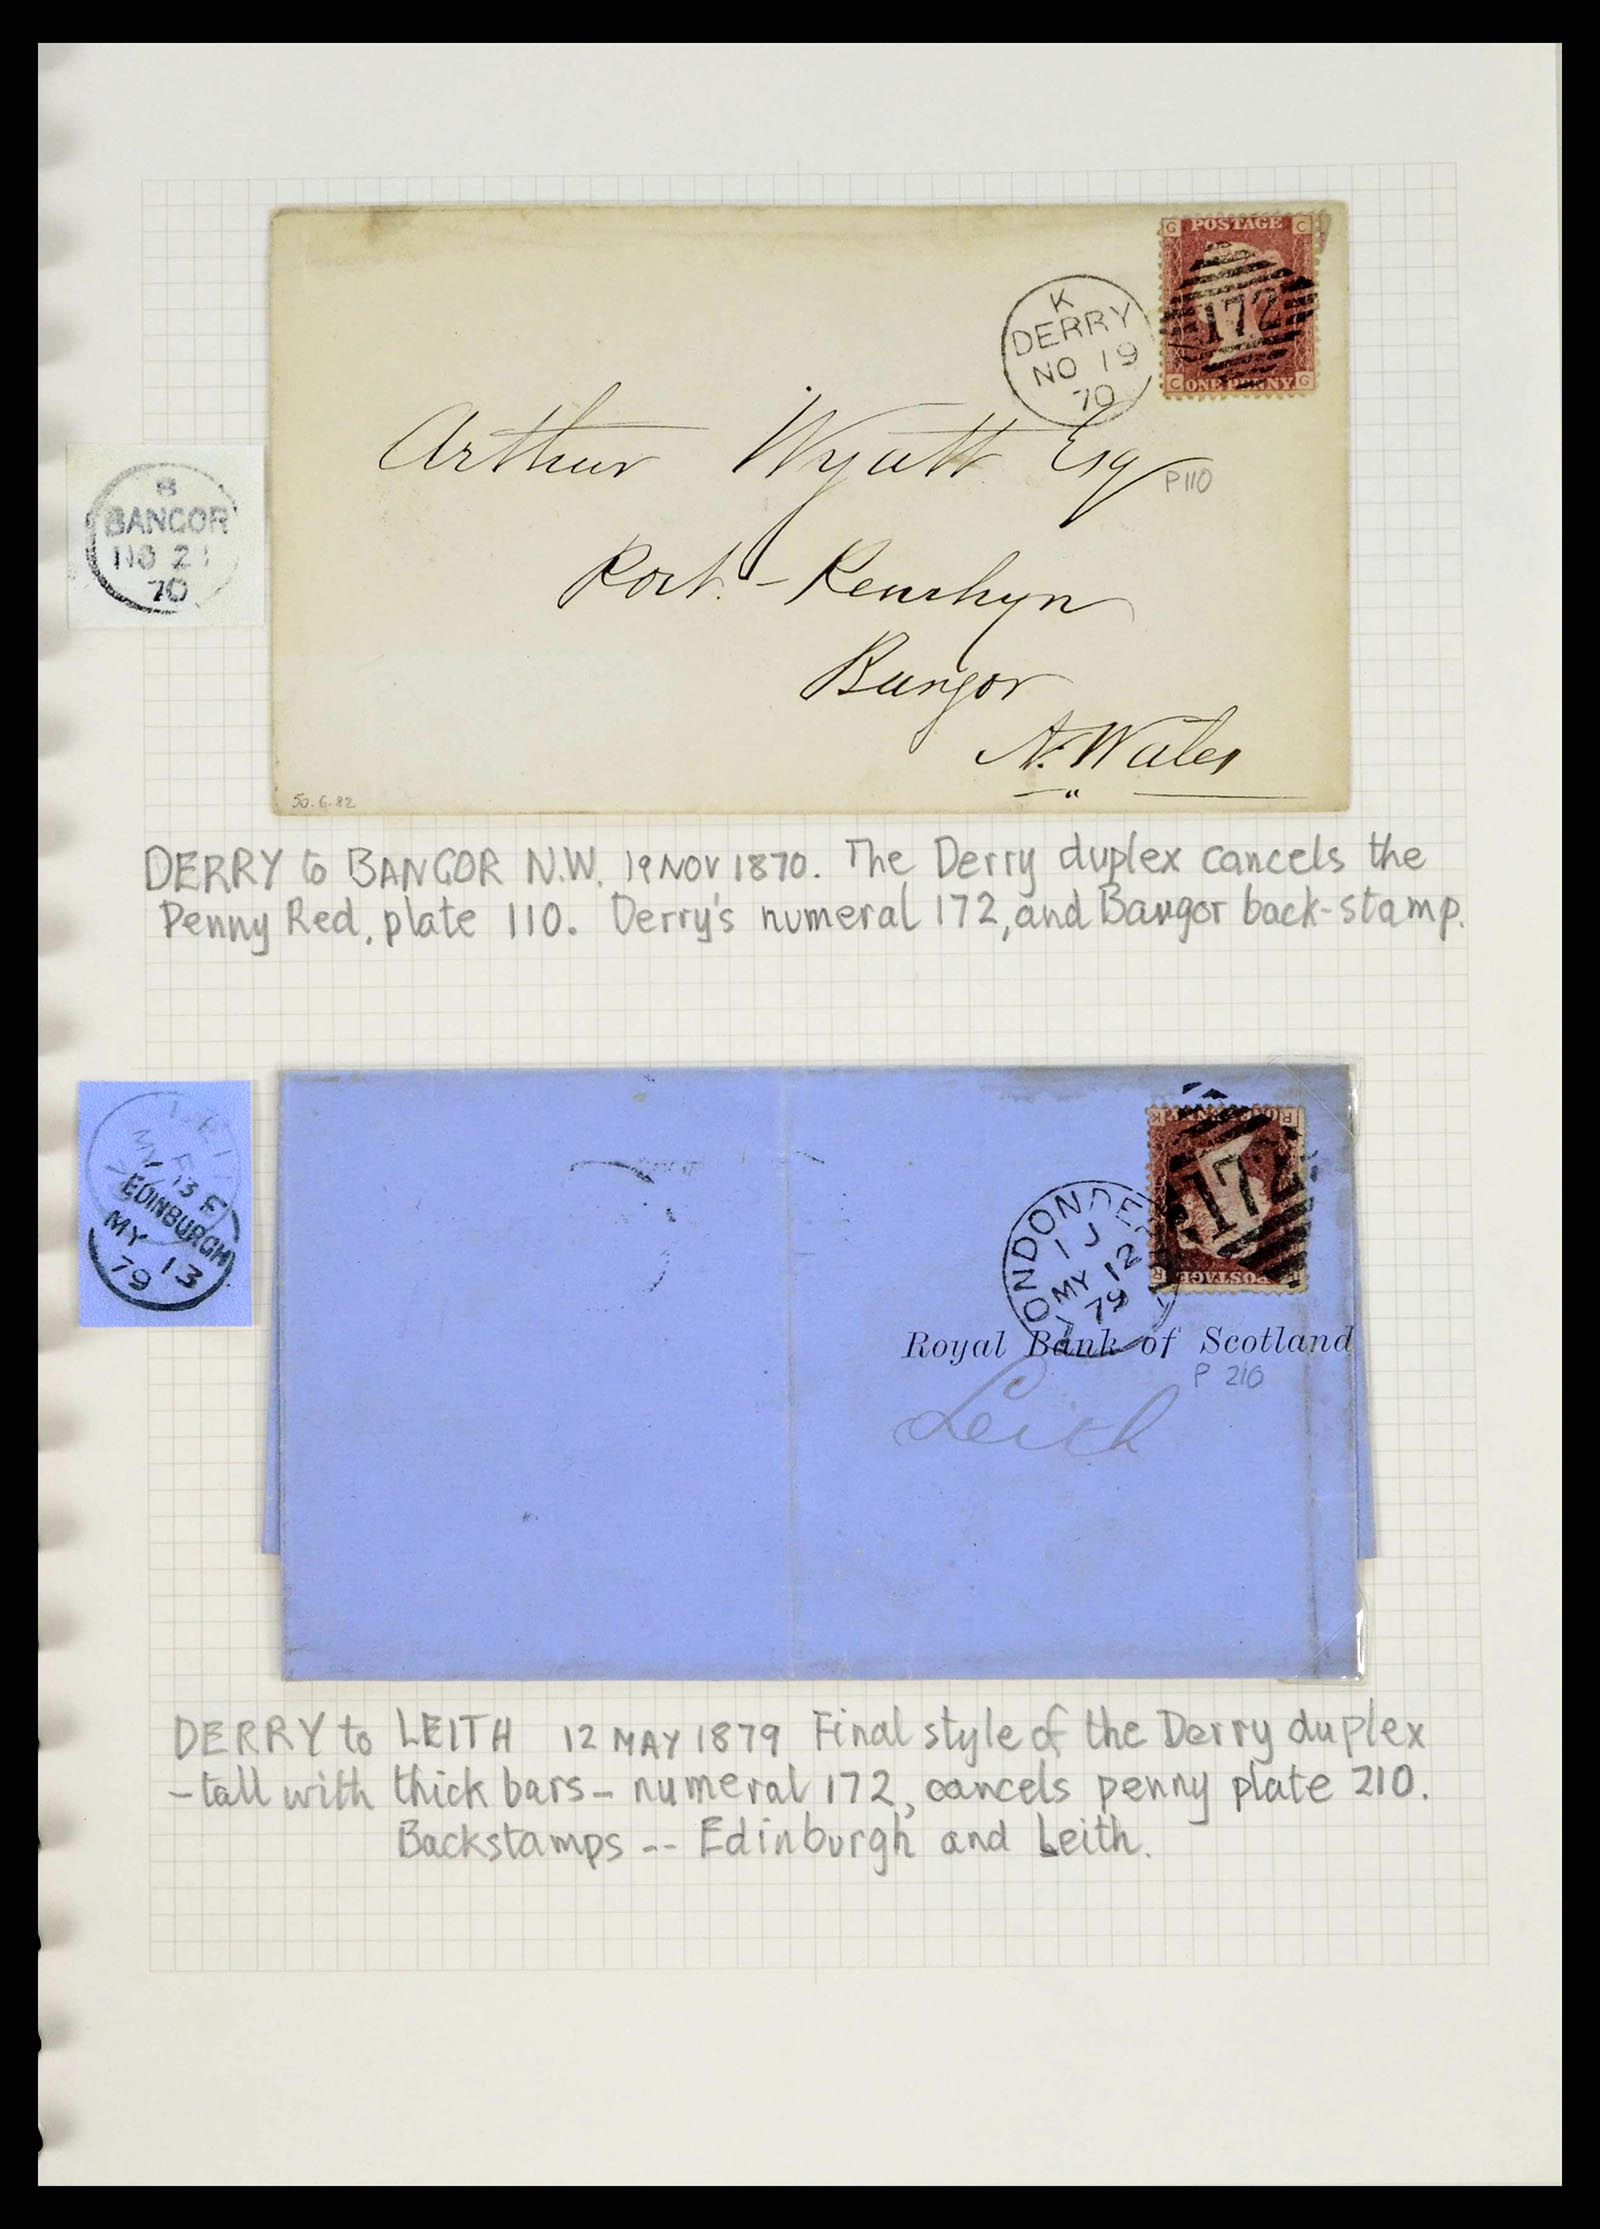 G POSTAGE C
172
C ONE PENNY G
K
DERRY
NO 19
70
Arthur Wyatt Esq
P110
Port-Penrhyn
Bangor
N. Wales
50.6.82
B
BANGOR
NO 21
70
DERRY to BANGOR N.W. 19 NOV 1870. The Derry duplex cancels the
Penny Red, plate 110. Derry's numeral 172, and Bangor back-stamp.
172
POSTAGE
LONDONDE
1 J
MY 12
79
Royal Bank of Scotland
P 210
Leith
LEIT
F
MY 13
F
EDINBURGH
MY 13
79
DERRY to LEITH 12 MAY 1879 Final style of the Derry duplex
-tall with thick bars- numeral 172, cancels penny plate 210.
Backstamps -- Edinburgh and Leith.